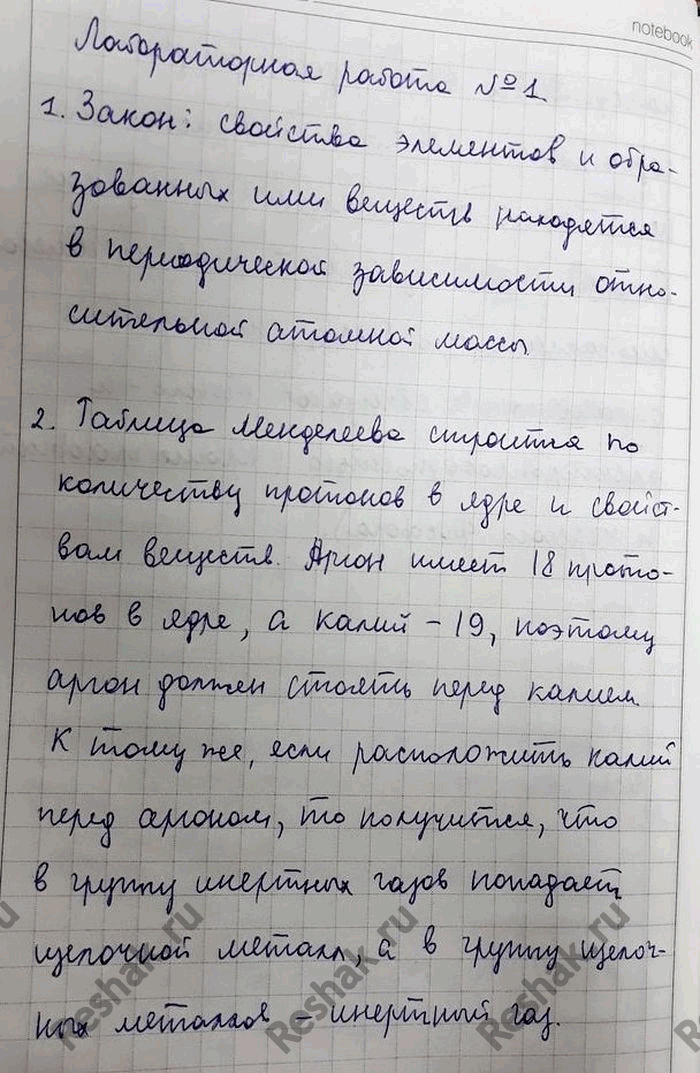 notebook
Лабораторная работа №1.
1. Закон: свойства элементов и обра-
зованных ими веществ находятся
в периодической зависимости отно-
сительной атомной массы.
2. Таблица Менделеева строится по
количеству протонов в ядре и свойст-
вам веществ. Аргон имеет 18 прото-
нов в ядре, а калий - 19, поэтому
аргон должен стоять перед калием.
К тому же, если расположить калий
перед аргоном, то получится, что
в группу инертных газов попадает
щелочной металл, а в группу щелоч-
ных металлов - инертный газ.
Reshak.ru
Reshak.ru
Reshak.ru